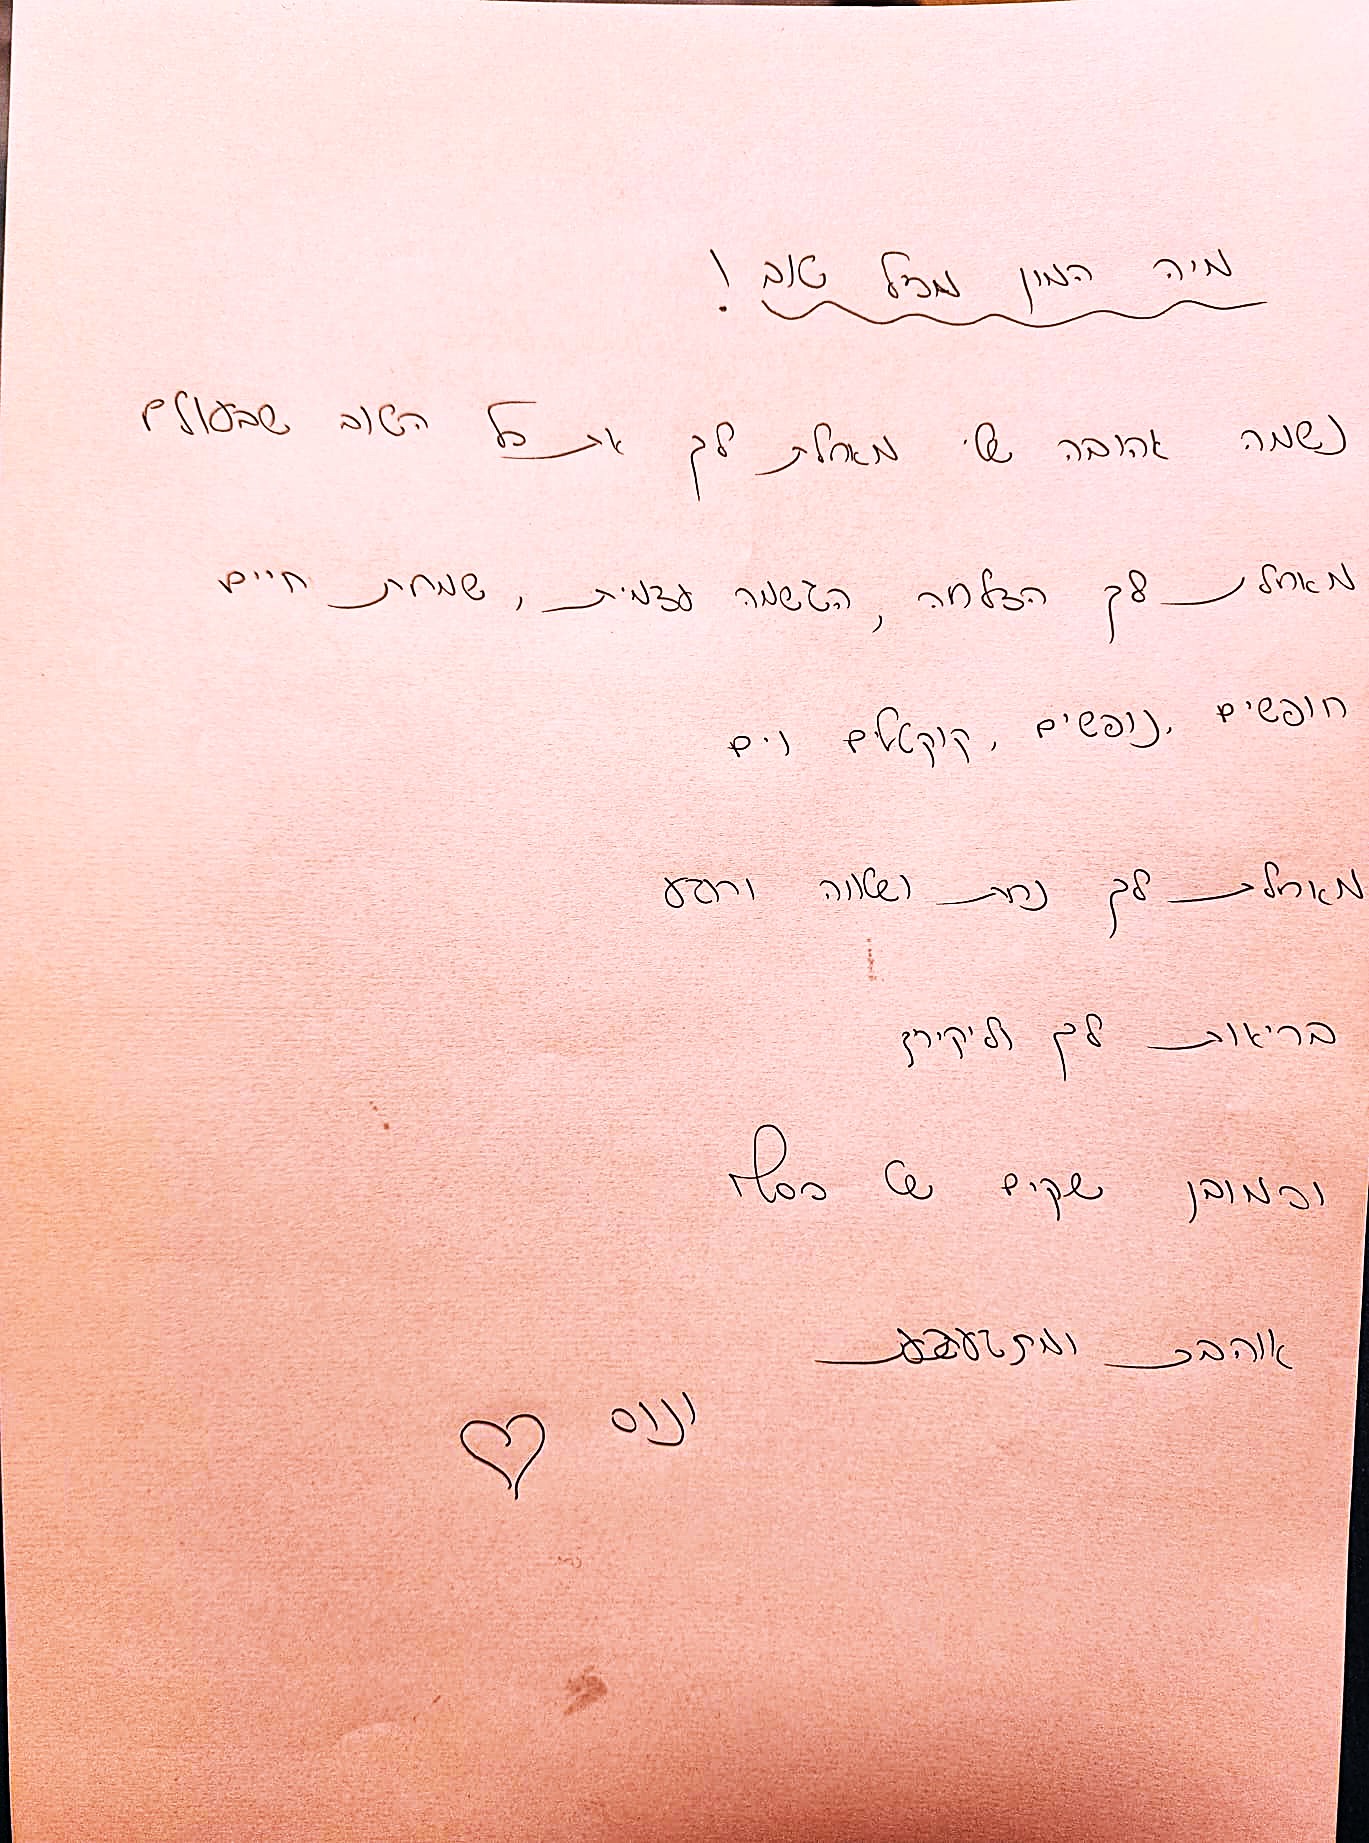 מיה המון מזל טוב!
נשמה אהובה שלי מאחלת לך את כל הטוב שבעולם
מאחלת לך הצלחה, הגשמה עצמית, שמחת חיים
חופשים, נופשים, קוקטלים וים
מאחלת לך נחת ושלווה ורוגע
בריאות לך וליקירך
וכמובן שקים של כסף
אוהבת ומתגעגעת
ונוס